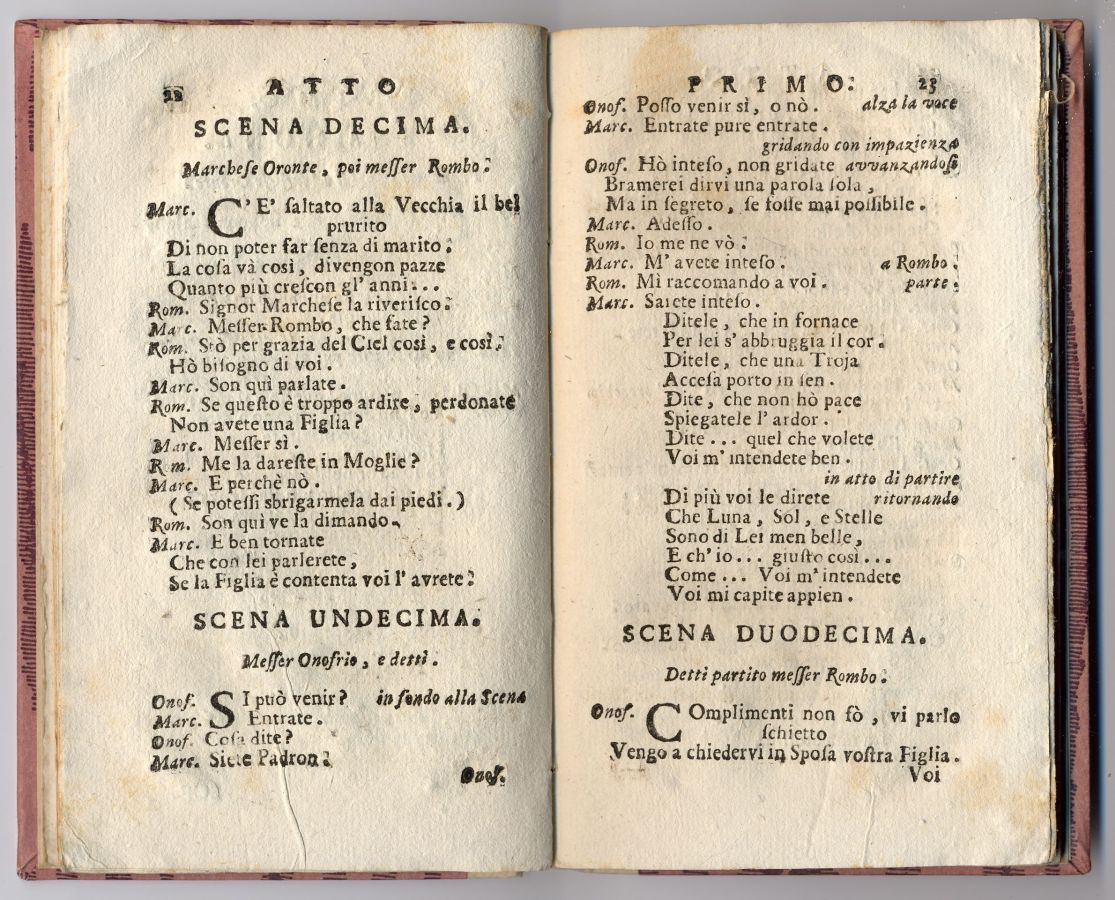 22 ATTO
SCENA DECIMA.
Marcheſe Oronte, poi meſſer Rombo.
Marc. C'E' ſaltato alla Vecchia il bel
prurito
Di non poter far ſenza di marito.
La coſa và così, divengon pazze
Quanto più creſcon gl' anni...
Rom. Signor Marcheſe la riveriſco.
Marc. Meſſer Rombo, che fate?
Rom. Stò per grazia del Ciel così, e così,
Hò biſogno di voi.
Marc. Son quì parlate.
Rom. Se queſto è troppo ardire, perdonate
Non avete una Figlia?
Marc. Meſſer sì.
Rom. Me la dareſte in Moglie?
Marc. E perchè nò.
( Se poteſſi sbrigarmela dai piedi. )
Rom. Son quì ve la dimando.
Marc. E ben tornate
Che con lei parlerete,
Se la Figlia è contenta voi l' avrete.
SCENA UNDECIMA.
Meſſer Onofrio, e detti.
Onof. SI può venir? in fondo alla Scena
Marc. Entrate.
Onof. Coſa dite?
Marc. Siete Padron.
Onof.
PRIMO. 23
Onof. Poſſo venir sì, o nò. alza la voce
Marc. Entrate pure entrate.
gridando con impazienza
Onof. Hò inteſo, non gridate avvanzandoſi
Bramerei dirvi una parola ſola,
Ma in ſegreto, ſe foſſe mai poſſibile.
Marc. Adeſſo.
Rom. Io me ne vò.
Marc. M' avete inteſo. a Rombo.
Rom. Mì raccomando a voi. parte.
Marc. Sarete inteſo.
Ditele, che in fornace
Per lei s' abbruggia il cor.
Ditele, che una Troja
Acceſa porto in ſen.
Dite, che non hò pace
Spiegatele l' ardor.
Dite... quel che volete
Voi m' intendete ben.
in atto di partire
Di più voi le direte ritornando
Che Luna, Sol, e Stelle
Sono di Lei men belle,
E ch' io... giuſto così...
Come... Voi m' intendete
Voi mi capite appien.
SCENA DUODECIMA.
Detti partito meſſer Rombo.
Onof. COmplimenti non ſò, vi parlo
ſchietto
Vengo a chiedervi in Spoſa voſtra Figlia.
Voi